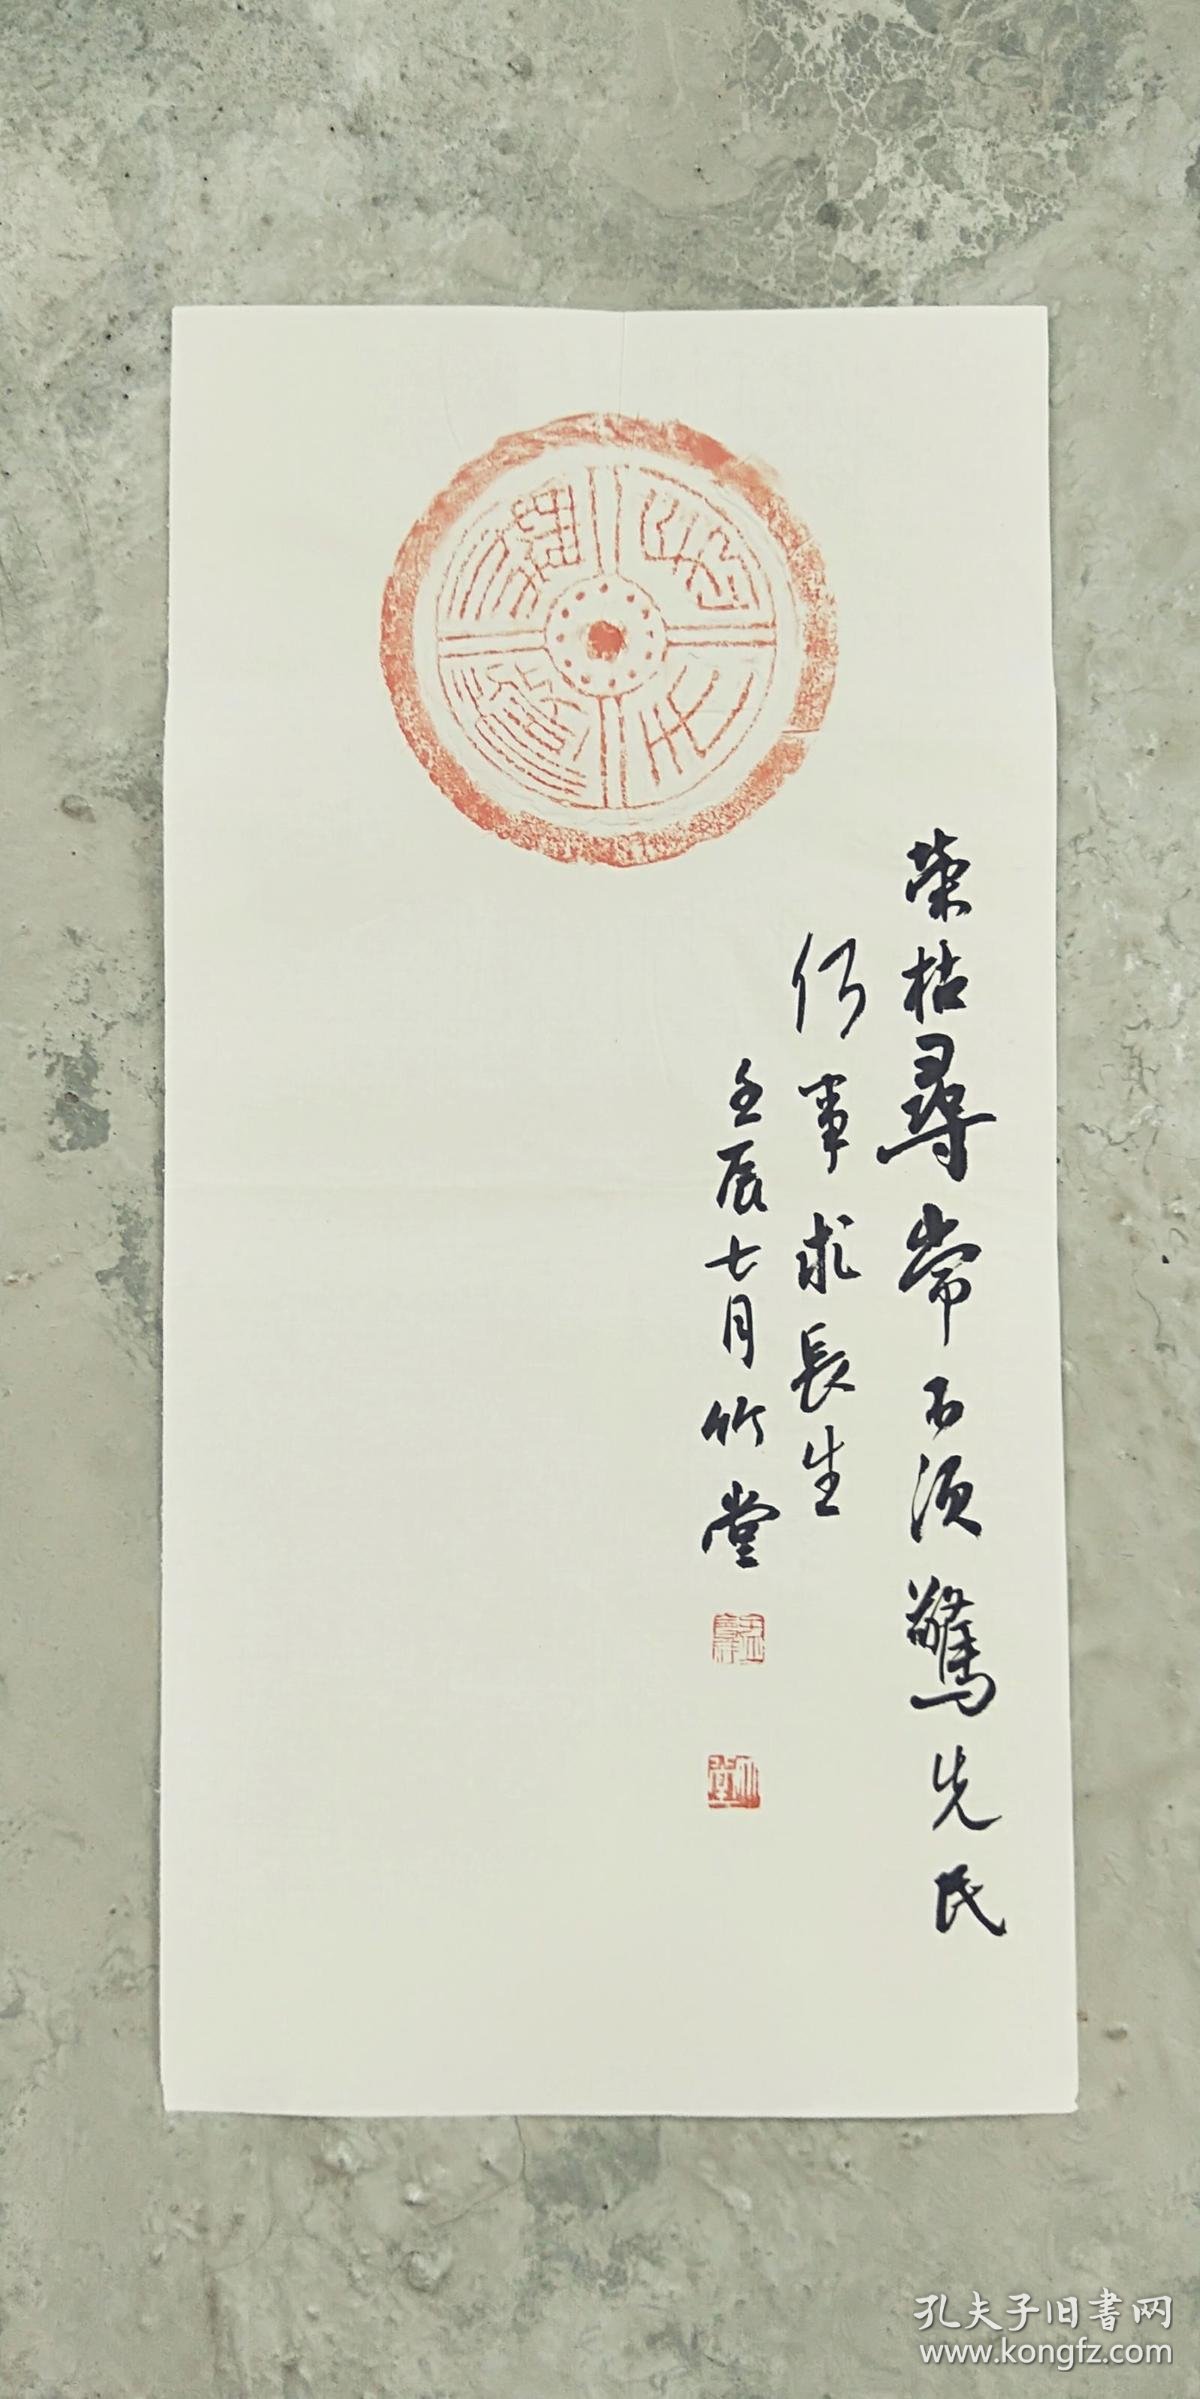 榮枯尋常不須驚先民
何事求長生
壬辰七月竹堂
竹堂
孔夫子旧書网
www.kongfz.com